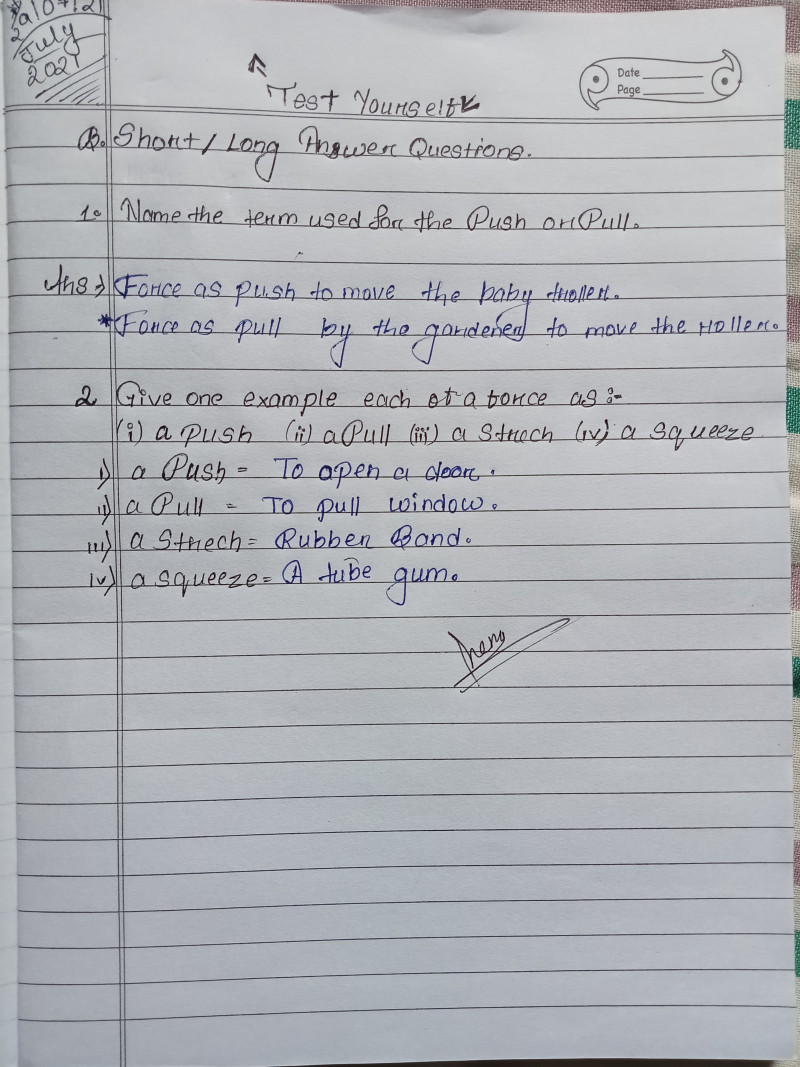 July
2021
Date
Page
Test Yourself
B. Short / Long Answer Questions.
1. Name the term used for the Push or Pull.
Ans ⇒ Force as push to move the baby troller.
*Force as pull by the gardener to move the roller.
2 Give one example each of a force as :-
(i) a push (ii) a Pull (iii) a Strech (iv) a squeeze
i) a Push = To open a door.
ii) a Pull = To pull window.
iii) a Strech = Rubber Band.
iv) a squeeze = A tube gum.